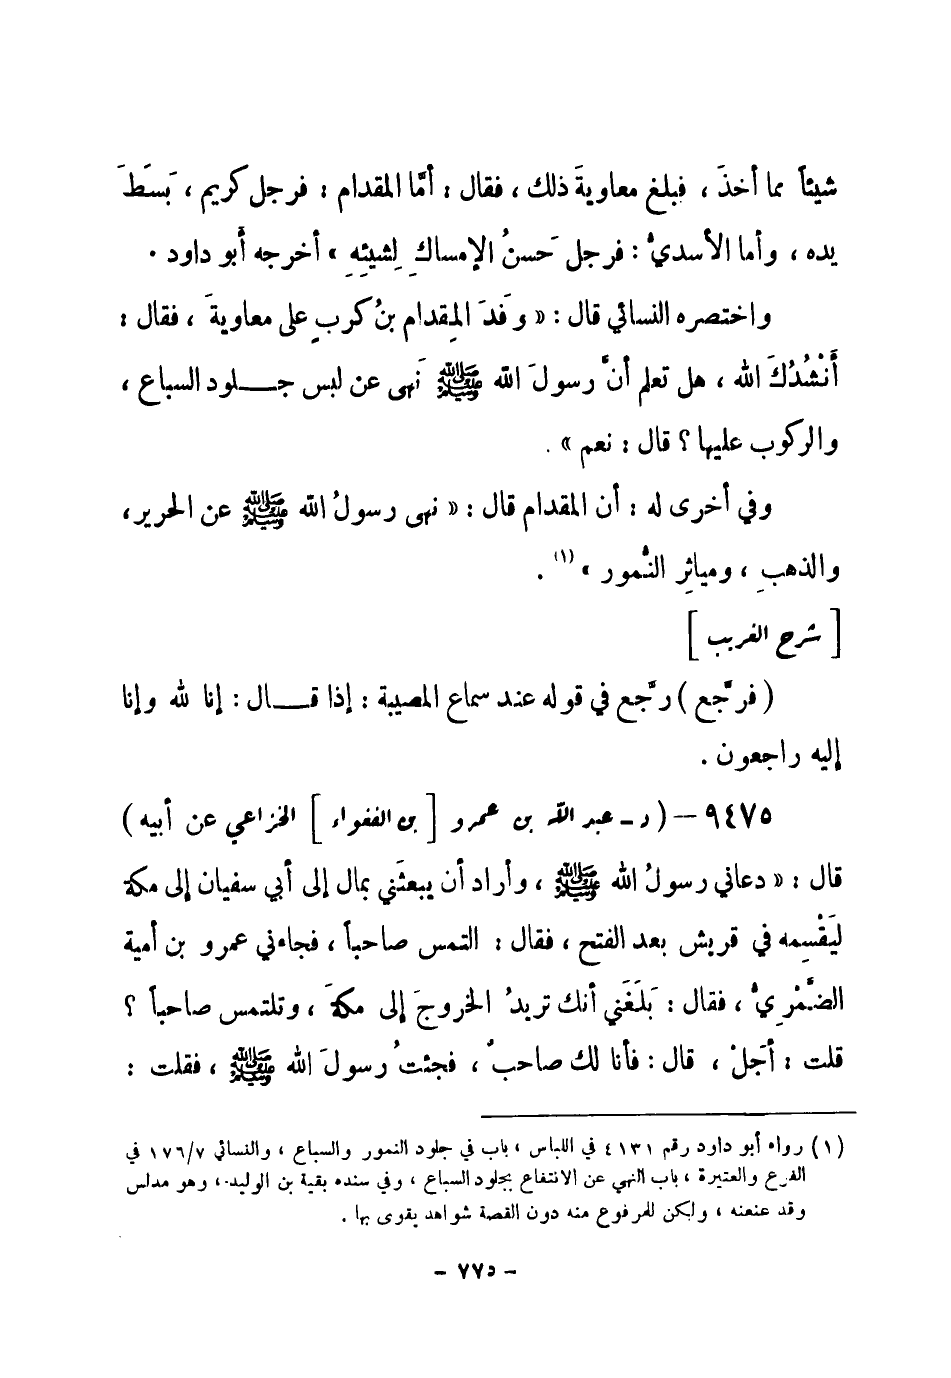 شيئاً مما أخذَ ، فبلغ معاويةَ ذلك ، فقال : أمَّا المقدام : فرجل كريم ، بَسَطَ
يده ، وأما الأسديُّ : فرجل حَسنُ الإمساكِ لِشيئِهِ » أخرجه أبو داود .
واختصره النسائي قال : « وَفَدَ المِقدام بنُ كربٍ على معاويةَ ، فقال :
أَنْشُدُكَ الله ، هل تعلم أنَّ رسولَ الله ﷺ نَهى عن لبس جلود السباع ،
والركوب عليها ؟ قال : نعم » .
وفي أخرى له : أن المقدام قال : « نهى رسولُ الله ﷺ عن الحرير،
والذهبِ ، ومياثِرِ النُّمور » (١) .
[ شرح الغريب ]
( فرجَّع ) رجَّع في قوله عند سماع المصيبة : إذا قال : إنا لله وإنا
إليه راجعون .
٩٤٧٥ - ( د - عبد الله بن عمرو [ بن الفغواء ] الخزاعي عن أبيه )
قال : « دعاني رسولُ الله ﷺ ، وأراد أن يبعثَني بمال إلى أبي سفيان إلى مكة
ليَقْسِمه في قريش بعد الفتح ، فقال : التمس صاحباً ، فجاءني عمرو بن أمية
الضَّمْرِيُّ ، فقال : بَلَغَني أنك تريدُ الخروجَ إلى مكةَ ، وتلتمس صاحباً ؟
قلت : أجَلْ ، قال : فأنا لك صاحبٌ ، فجئتُ رسولَ الله ﷺ ، فقلت :
(١) رواه أبو داود رقم ٤١٣١ في اللباس ، باب في جلود النمور والسباع ، والنسائي ١٧٦/٧ في
الفرع والعتيرة ، باب النهي عن الانتفاع بجلود السباع ، وفي سنده بقية بن الوليد ، وهو مدلس
وقد عنعنه ، ولكن للمرفوع منه دون القصة شواهد يقوى بها .
- ٧٧٥ -